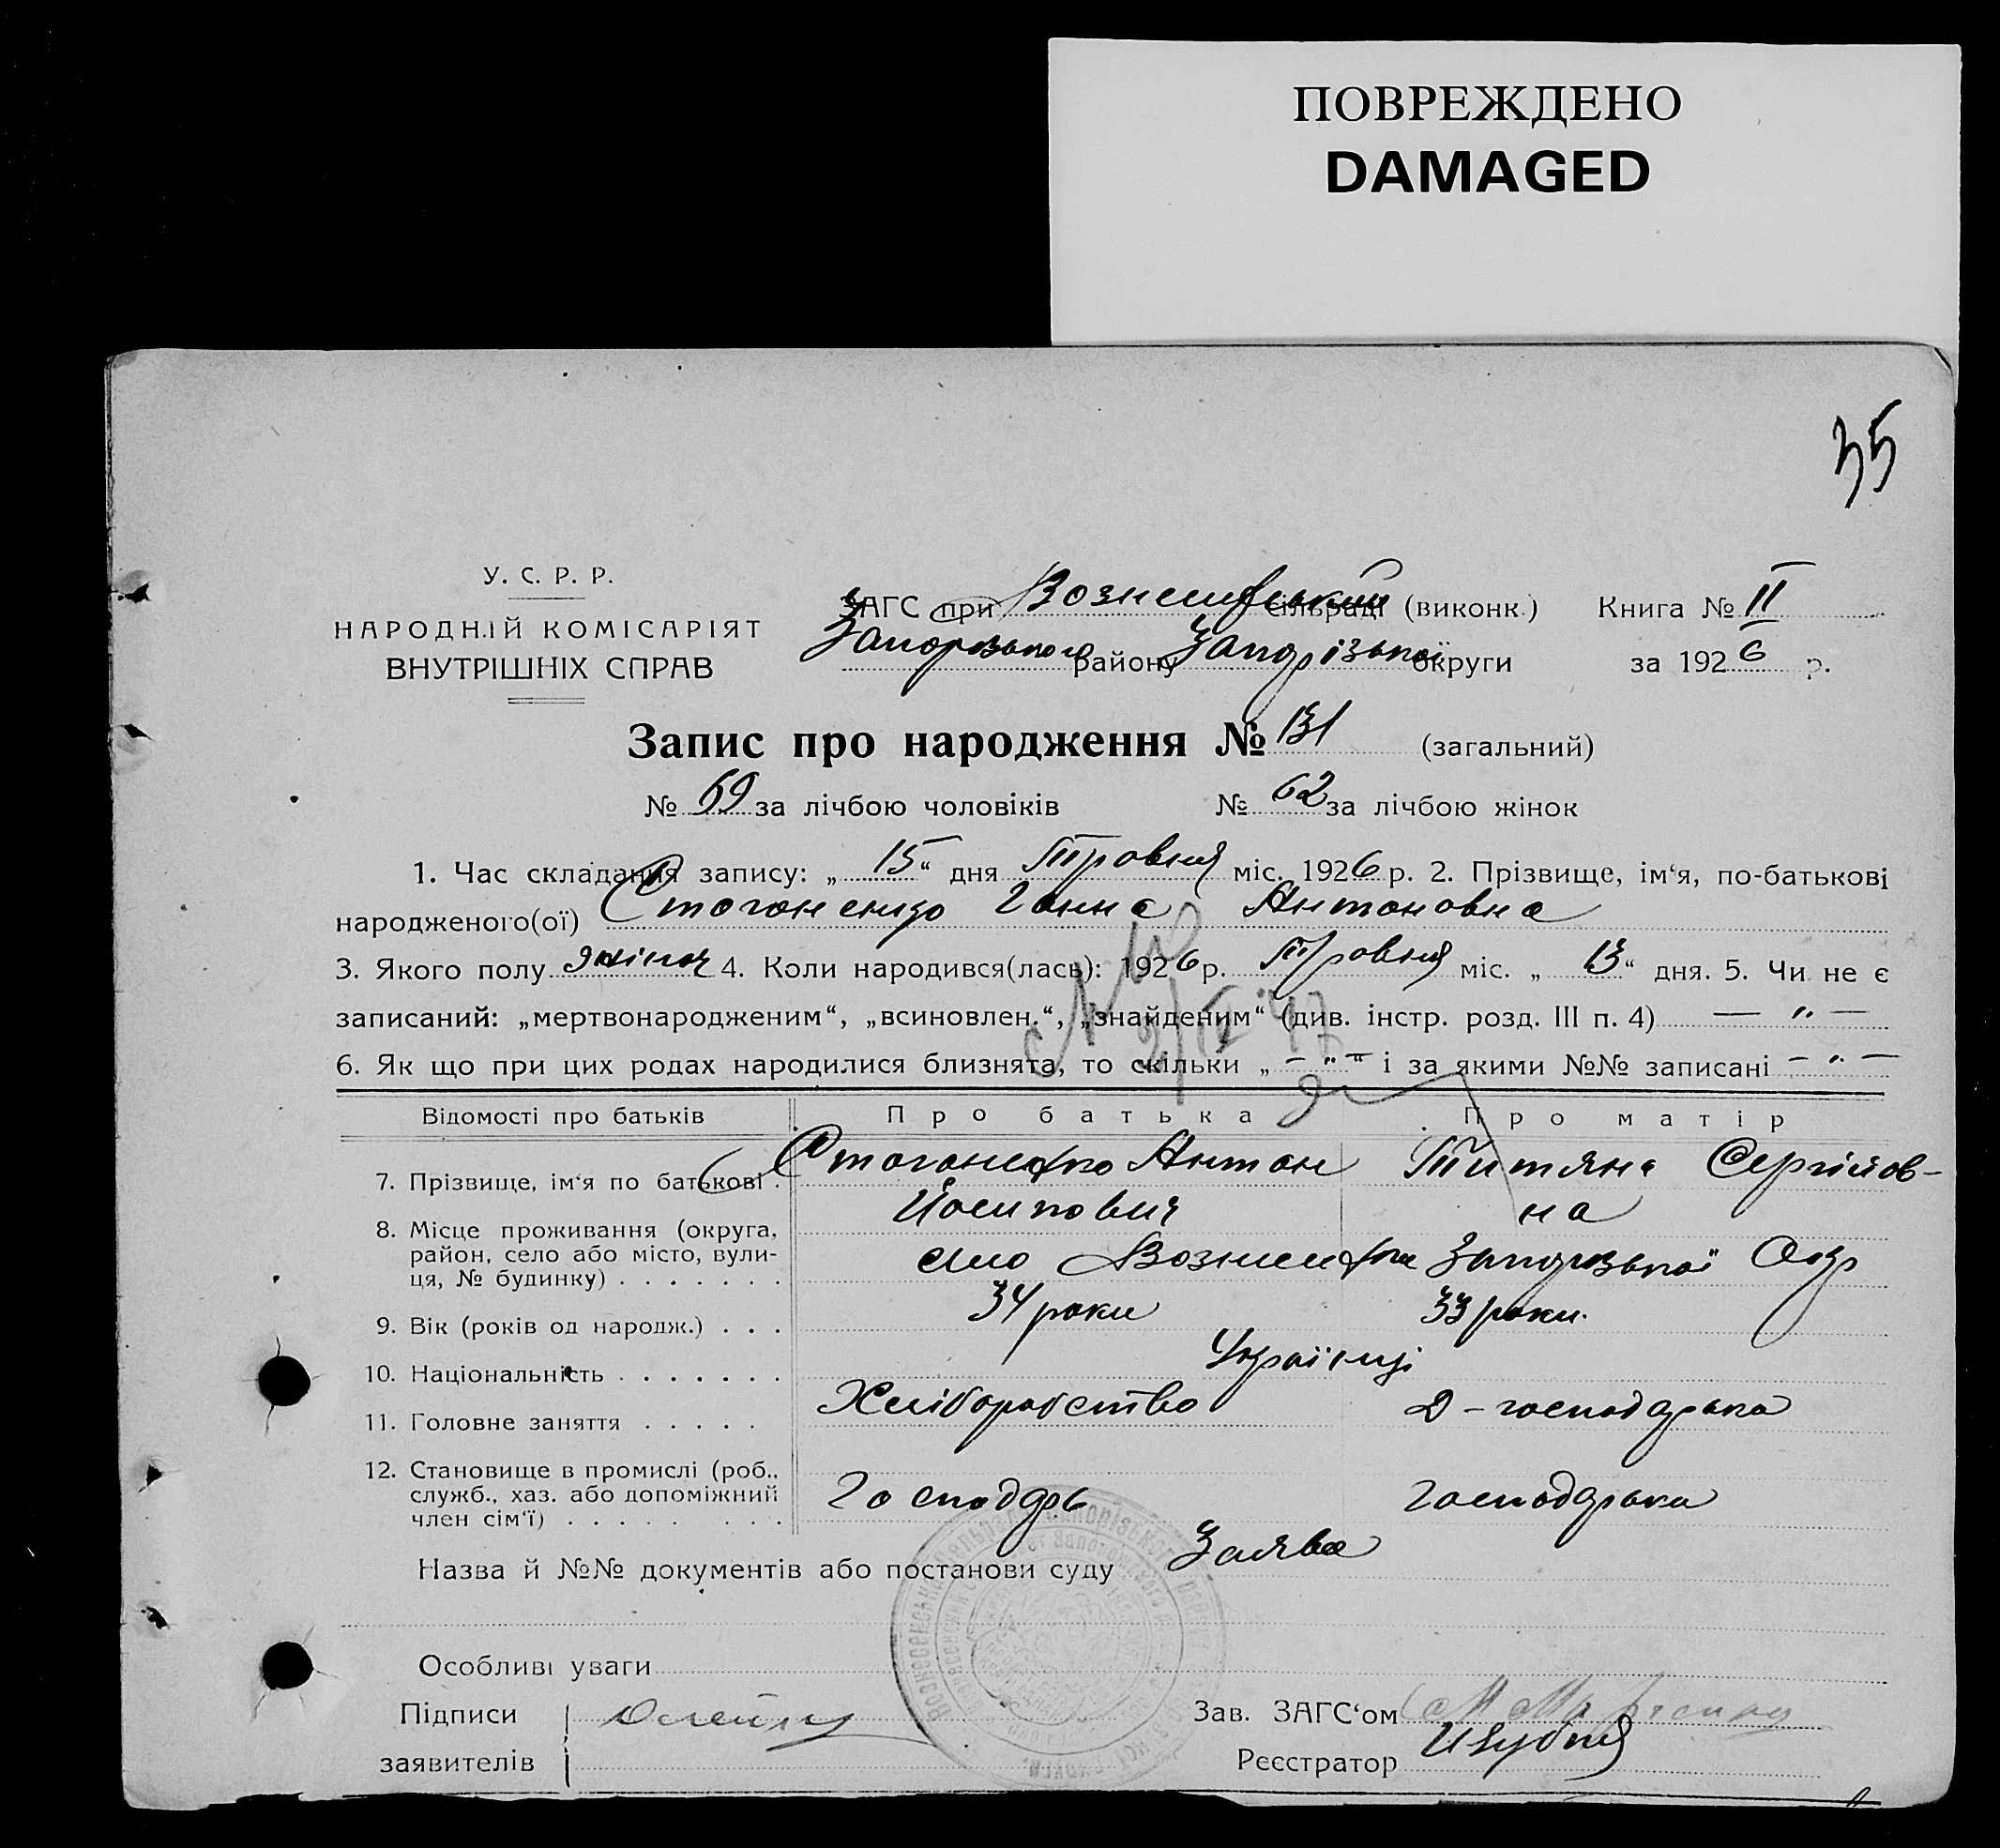 ПОВРЕЖДЕНО
DAMAGED
35
У. С. Р. Р.
НАРОДНІЙ КОМІСАРІЯТ
ВНУТРІШНІХ СПРАВ
ЗАГС при Вознесенський сільраді (виконк.) Книга № II
Запорізького району Запорізької округи за 1926 р.
Запис про народження № 131 (загальний)
№ 69 за лічбою чоловіків № 62 за лічбою жінок
1. Час складання запису: „15“ дня Тровня міс. 1926 р. 2. Прізвище, ім‘я, по-батькові
народженого(ої) Стогоненко Ганна Антоновна
3. Якого полу жіноч 4. Коли народився(лась): 1926 р. Тровня міс. „13“ дня. 5. Чи не є
записаний: „мертвонародженим“, „всиновлен.“, „знайденим“ (див. інстр. розд. III п. 4) — „ —
6. Як що при цих родах народилися близнята, то скільки „ — „ — “ і за якими №№ записані — „ —
Відомості про батьків Про батька Про матір
7. Прізвище, ім‘я по батькові . Стогоненко Антон Титяна Сергійов-
Йосипович на
8. Місце проживання (округа,
район, село або місто, вули-
ця, № будинку) . . . . . . . село Вознесенка Запорізької Окр
9. Вік (років од народж.) . . . 34 роки 33 роки.
10. Національність . . . . . . . Українці
11. Головне заняття . . . . . Хліборобство Д-господарка
12. Становище в промислі (роб.,
служб., хаз. або допоміжний
член сім‘ї) . . . . . . . . Господарь господарька
Назва й №№ документів або постанови суду Заява
Особливі уваги
Підписи Зав. ЗАГС‘ом
заявителів Реєстратор